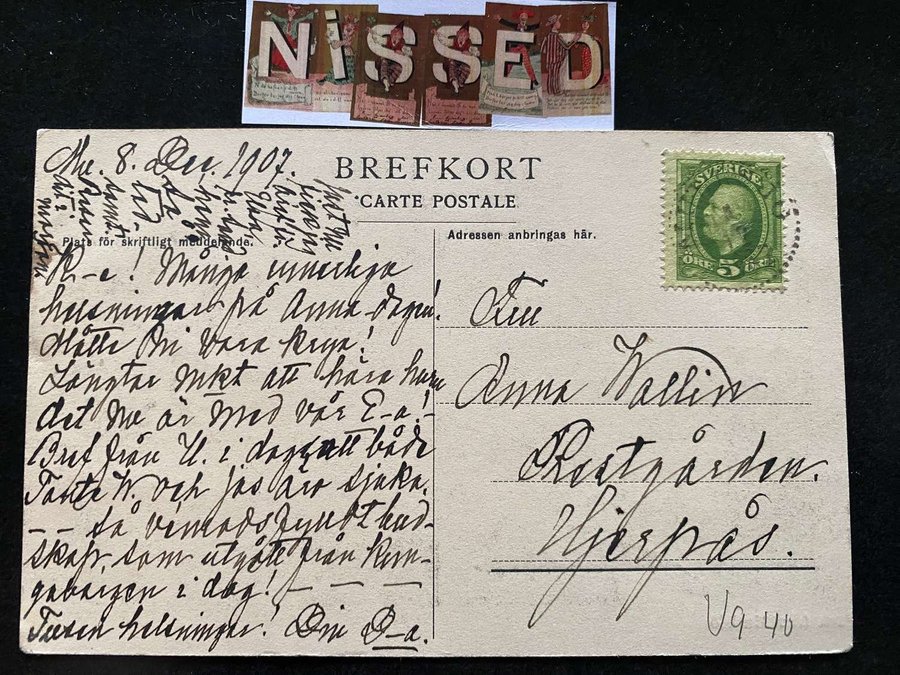 NISSED
8. Dec. 1907.
BREFKORT
CARTE POSTALE
SVERIGE
ÖRE 5 ÖRE
Plats för skriftligt meddelande.
Adressen anbringas här.
K-a! Många innerliga
helsningar på Anna-dagen!
Måtte Du vara krya!
Längtar mkt att höra huru
det nu är med vår E-a!-
Bref från U. i dag att både
Tante W. och jas äro sjuka.
-- så vemodsfylldt bud-
skap, som utgått från kun-
gaborgen i dag! - - -
Tusen helsningar! Din D-a.
Frn
Anna Wallin
Prostgården.
Hjerpås.
Vg 40